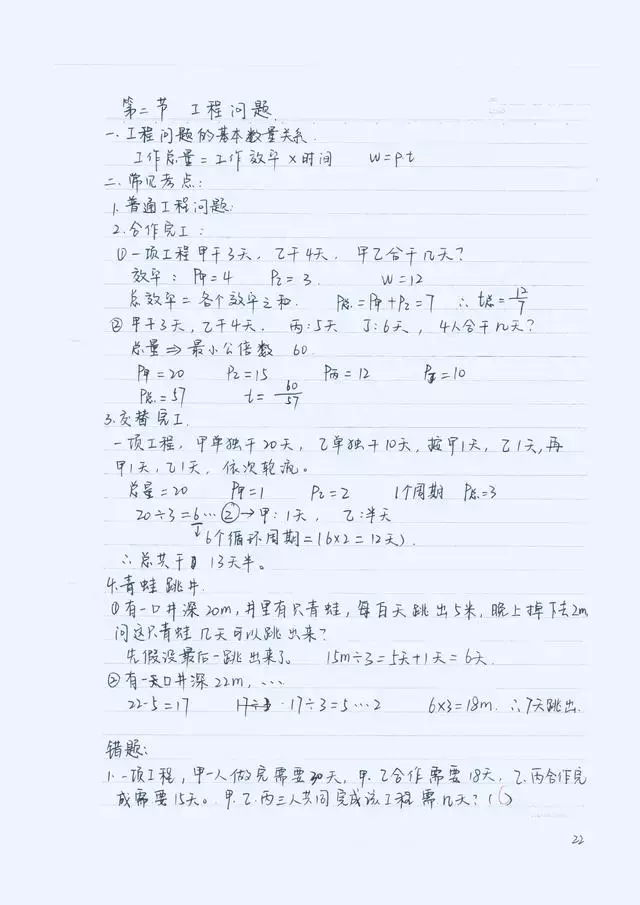 第二节 工程问题
一.工程问题的基本数量关系.
工作总量=工作效率×时间 W=p.t
二.常见考点:
1.普通工程问题:
2.合作完工:
①一项工程甲干3天,乙干4天,甲乙合干几天?
效率: P甲=4 P乙=3. W=12
总效率=各个效率之和. P总=P甲+P乙=7 ∴t总=12/7
②甲干3天,乙干4天. 丙:5天 丁:6天, 4人合干几天?
总量⇒最小公倍数 60.
P甲=20 P乙=15 P丙=12 P丁=10
P总=57 t=60/57
3.交替完工.
一项工程,甲单独干20天,乙单独干10天,按甲1天,乙1天,再
甲1天,乙1天,依次轮流。
总量=20 P甲=1 P乙=2 1个周期 P总=3
20÷3=6…②→甲:1天, 乙:半天
↓6个循环周期=(6×2=12天)
∴总共干 13天半。
4.青蛙跳井.
①有一口井深20m,井里有只青蛙,每白天跳出5米,晚上掉下去2m
问这只青蛙几天可以跳出来?
先假设最后一跳出来了. 15m÷3=5天+1天=6天.
②有一口井深22m,…
22-5=17 17÷3=5…2 6×3=18m.∴7天跳出.
错题:
1.一项工程,甲一人做完需要30天,甲.乙合作需要18天,乙.丙合作完
成需要15天。甲.乙.丙三人共同完成该工程需几天?( )
22